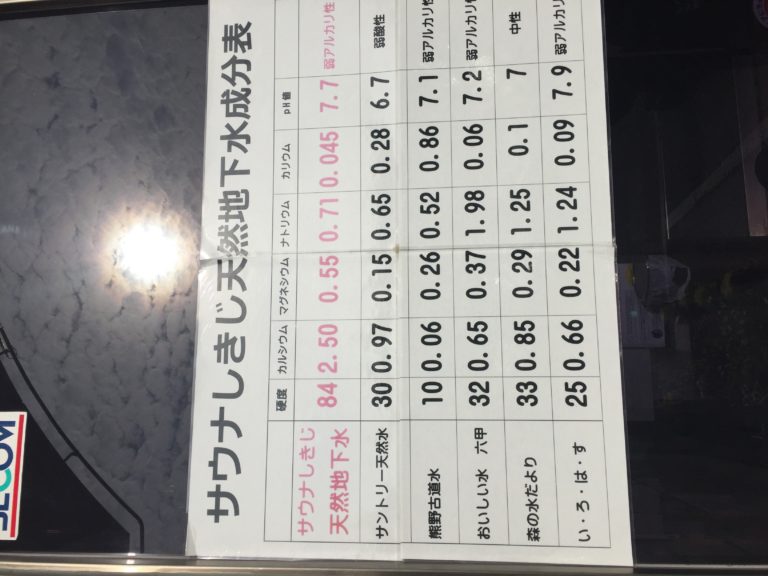 サウナしきじ天然地下水成分表
硬度 カルシウム マグネシウム ナトリウム カリウム pH値
サウナしきじ
天然地下水 84 2.50 0.55 0.71 0.045 7.7 弱アルカリ性
サントリー天然水 30 0.97 0.15 0.65 0.28 6.7 弱酸性
熊野古道水 10 0.06 0.26 0.52 0.86 7.1 弱アルカリ性
おいしい水 六甲 32 0.65 0.37 1.98 0.06 7.2 弱アルカリ性
森の水だより 33 0.85 0.29 1.25 0.1 7 中性
い・ろ・は・す 25 0.66 0.22 1.24 0.09 7.9 弱アルカリ性
SECOM